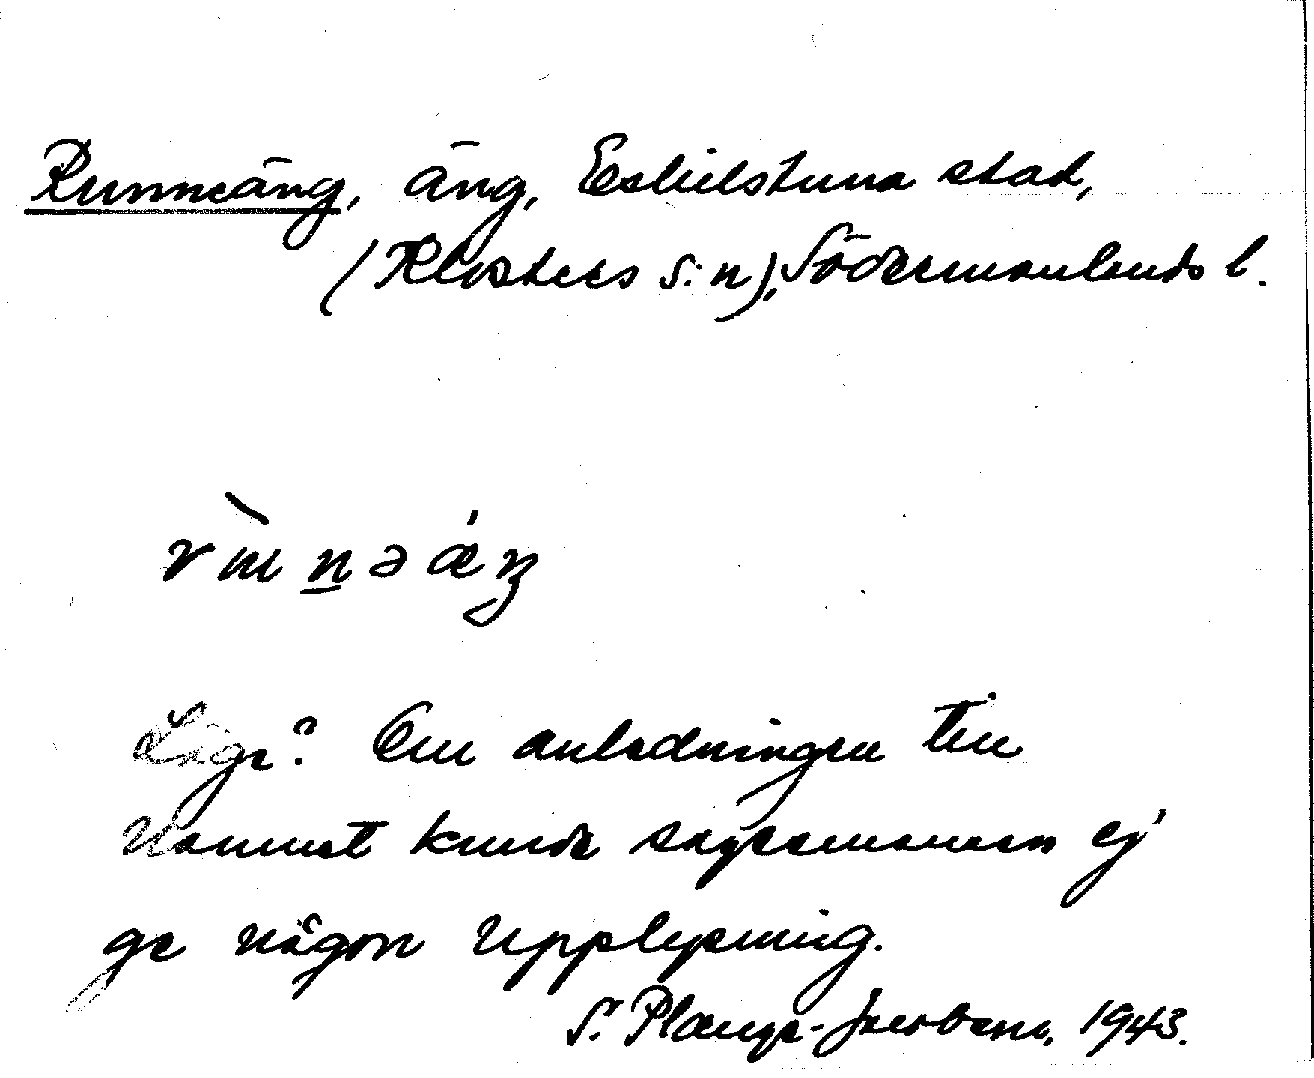 Runneäng, äng, Eskilstuna stad,
(Klosters s:n), Södermanlands l.
rɯ̀n̲əǽŋ
Läge? Om anledningen till
namnet kunde sagesmannen ej
ge någon upplysning.
S. 1943.